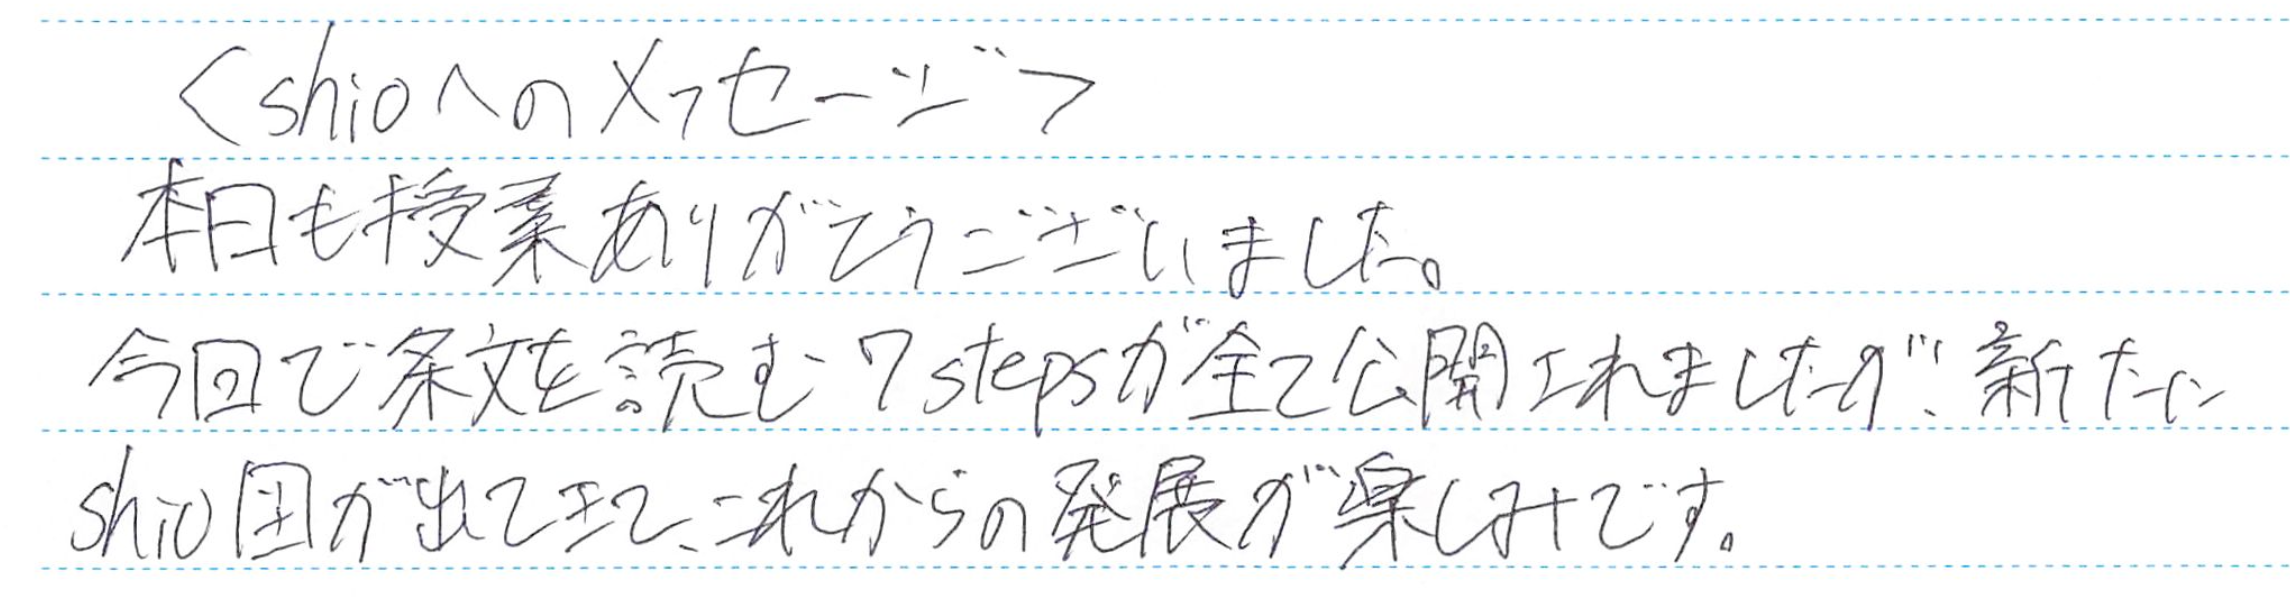 <shioへのメッセージ>
本日も授業ありがとうございました。
今回で条文を読む7stepsが全て公開されましたが、新たに
shio国が出てきて、これからの発展が楽しみです。